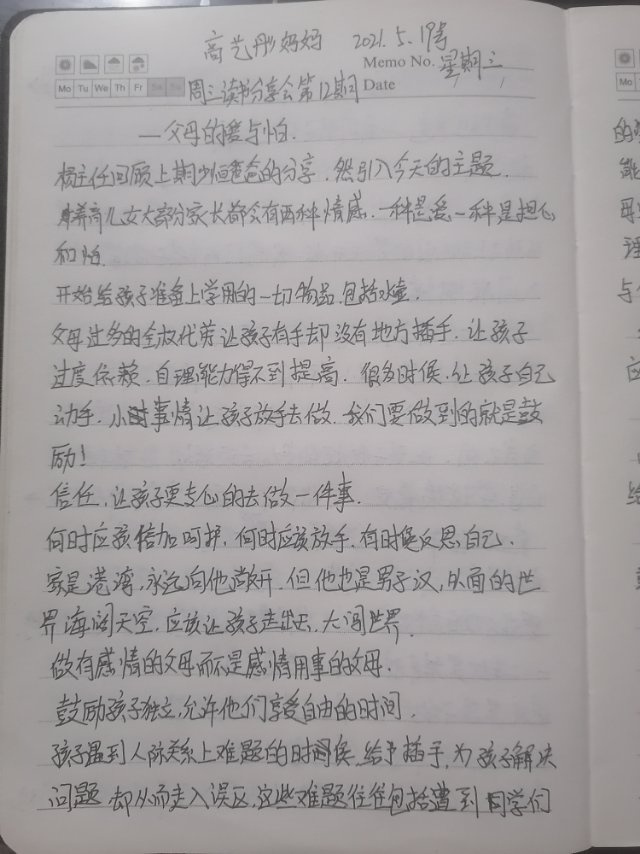 高艺彤妈妈 2021.5.19号
Memo No. 星期三
Mo Tu We Th Fr Sa Su Date
周三读书分享会第12期
—父母的爱与怕.
杨主任回顾上期少恒爸爸的分享,然引入今天的主题.
养育儿女大部分家长都会有两种情感.一种是爱一种是担心
和怕.
开始给孩子准备上学用的一切物品.包括水壶.
父母过多的全权代劳让孩子有手却没有地方插手.让孩子
过度依赖.自理能力得不到提高.很多时候.让孩子自己
动手.小事情让孩子放手去做.我们要做到的就是鼓
励!
信任.让孩子更专心的去做一件事.
何时应该倍加呵护,何时应该放手.有时候反思自己.
家是港湾,永远向他敞开.但他也是男子汉,外面的世
界海阔天空.应该让孩子走出去.大闯世界.
做有感情的父母而不是感情用事的父母.
鼓励孩子独立,允许他们享受自由的时间.
孩子遇到人际关系上难题的时候.给予插手,为孩子解决
问题 却从而走入误区.这些难题往往包括遭到同学们
的
能
理
与
应
给